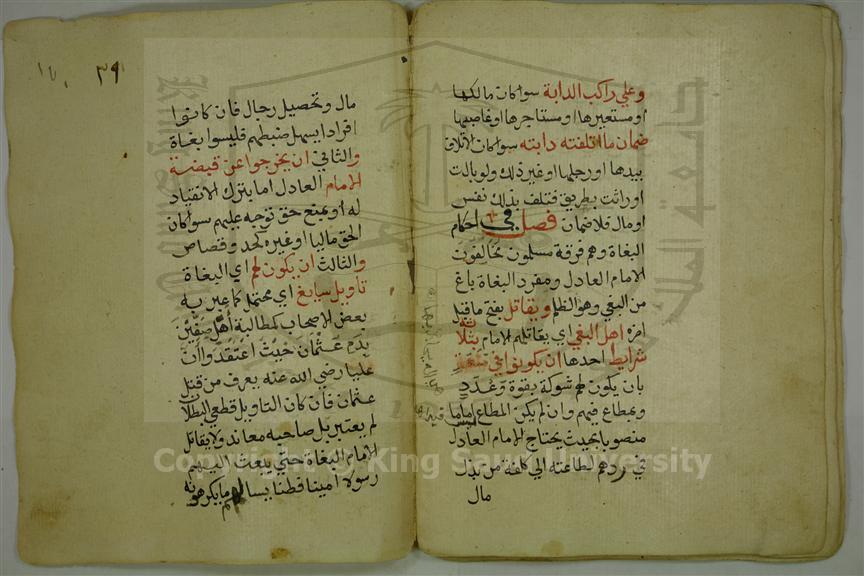 وعلي راكب الدابة سوا كان مالكها
او مستعيرها او مستاجرها او غاصبها
ضمان ما اتلفته دابته سوا كان الاتلاف
بيدها او رجلها او غير ذلك ولو بالت
او راثت بطريق فتلف بذلك نفس
او مال فلا ضمان فصل في احكام
البغاة وهم فرقة مسلمون مخالفون
الامام العادل ومفرد البغاة باغ
من البغي وهو الظلم ويقاتل بفتح ما قبل
اخره اهل البغي اي يقاتلهم الامام بثلاثة
شرايط احدها ان يكونوا في منعة
بان يكون لهم شوكة بقوة وعدد
وبمطاع فيهم وان لم يكن المطاع اماما
منصوبا بحيث يحتاج الامام العادل
في ردهم لطاعته الي كلفة من بذل
مال
٣٩
مال وتحصيل رجال فان كانوا
افرادا يسهل ضبطهم فليسوا بغاة
والثاني ان يخرجوا عن قبضة
الامام العادل اما بترك الانقياد
له او بمنع حق توجه عليهم سوا كان
الحق ماليا او غيره كحد وقصاص
والثالث ان يكون لهم اي البغاة
تاويل سايغ اي محتمل كما عبر به
بعض الاصحاب كمطالبة اهل صفين
بدم عثمان حيث اعتقدوا ان
عليا رضي الله عنه يعرف من قتل
عثمان فان كان التاويل قطعي البطلان
لم يعتبر بل صاحبه معاند ولا يقاتل
الامام البغاة حتي يبعث اليهم
رسولا امينا فطنا يسالهم ما يكرهونه
Copyright © King Saud University